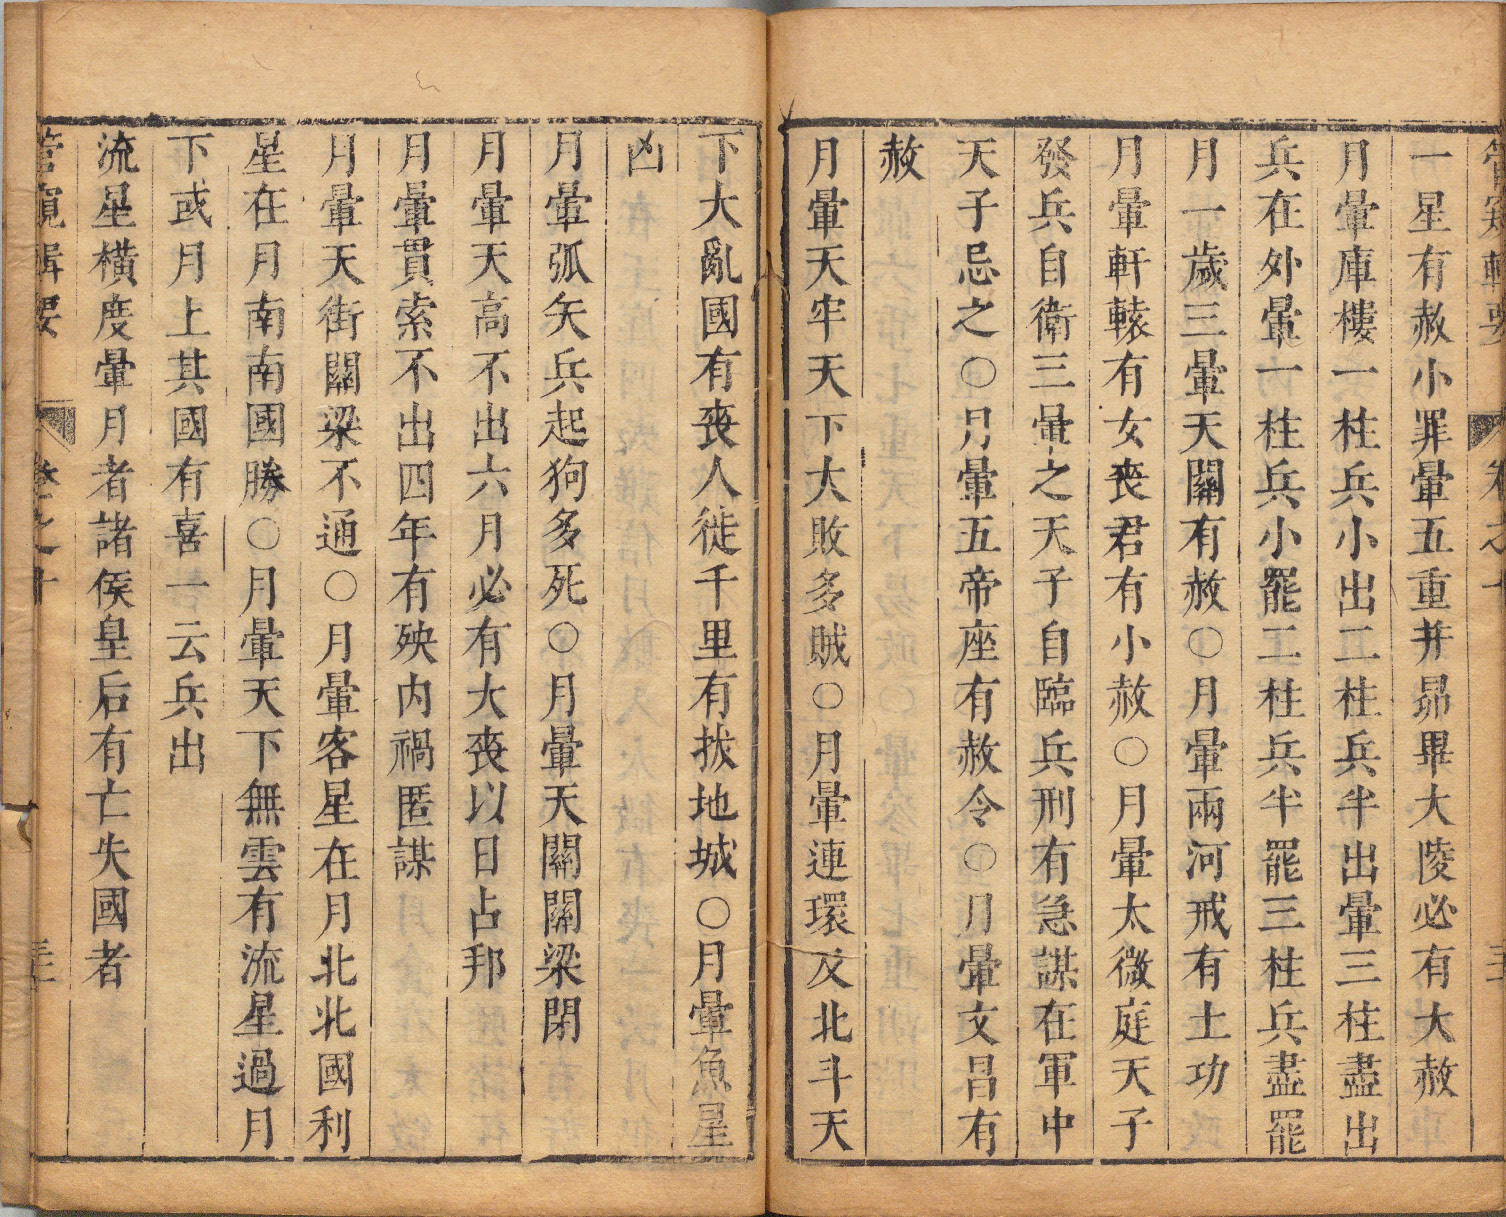 管窺輯要 卷之十
一星有赦小罪暈五重井昴畢大陵必有大赦
月暈庫樓一柱兵小出二柱兵半出暈三柱盡出
兵在外暈一柱兵小罷二柱兵半罷三柱兵盡罷
月一歲三暈天關有赦○月暈兩河戒有土功
月暈軒轅有女喪君有小赦○月暈太微庭天子
發兵自衛三暈之天子自臨兵刑有急謀在軍中
天子忌之○月暈五帝座有赦令○月暈文昌有
赦
月暈天牢天下大敗多賊○月暈連環及北斗天
下大亂國有喪人徙千里有拔地城○月暈魚星
凶
月暈弧矢兵起狗多死○月暈天關關梁閉
月暈天高不出六月必有大喪以日占邦
月暈貫索不出四年有殃內禍匿謀
月暈天街關梁不通○月暈客星在月北北國利
星在月南南國勝○月暈天下無雲有流星過月
下或月上其國有喜一云兵出
流星橫度暈月者諸侯皇后有亡失國者
管窺輯要 卷之十